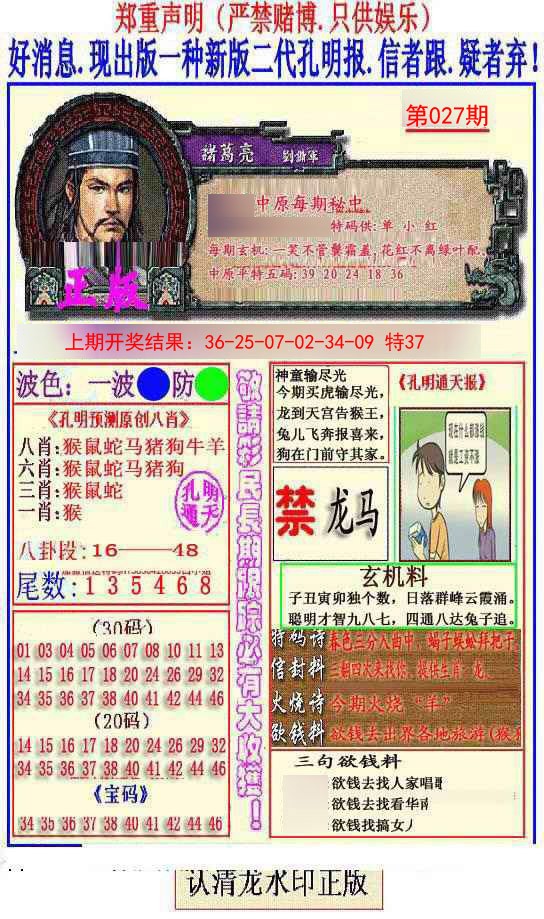 郑重声明（严禁赌博.只供娱乐）
好消息.现出版一种新版二代孔明报.信者跟.疑者弃!
第027期
諸葛亮
中原每期秘中
特码供:单 小 红
每期玄机:一笑不管鬓霜盖 花红不离绿叶配.
中原平特五码:39 20 24 18 36
正版
上期开奖结果：36-25-07-02-34-09 特37
波色：一波 防
《孔明预测原创八肖》
八肖:猴鼠蛇马猪狗牛羊
六肖:猴鼠蛇马猪狗
三肖:猴鼠蛇
一肖:猴
孔明
通天
八卦段:16——48
尾数:135468
(30码)
01 03 04 05 06 08 10 11 13
14 15 16 17 18 20 24 26 29 32
34 35 36 37 38 40 41 42 44 46
(20码)
14 15 16 17 18 20 24 26 29 32
34 35 36 37 38 40 41 42 44 46
《宝码》
34 35 36 37 38 40 41 42 44 46
敬請彩民長期跟踪必有大收獲!
神童输尽光
今期买虎输尽光，
龙到天宫告猴王，
兔儿飞奔报喜来，
狗在门前守其家。
《孔明通天报》
现在什么都涨钱
就是工资不涨
禁 龙马
玄机料
子丑寅卯独个数，日落群峰云霞涌。
聪明才智九八七，四通八达兔子追。
特码诗 春色三分人曲中，蝎子蜈蚣拜把子
信封料
火烧诗 今期火烧“羊”
欲钱料 欲钱去出界各地旅游(猴
三句欲钱料
欲钱去找人家唱
欲钱去找看华
欲钱找搞女人
认清龙水印正版